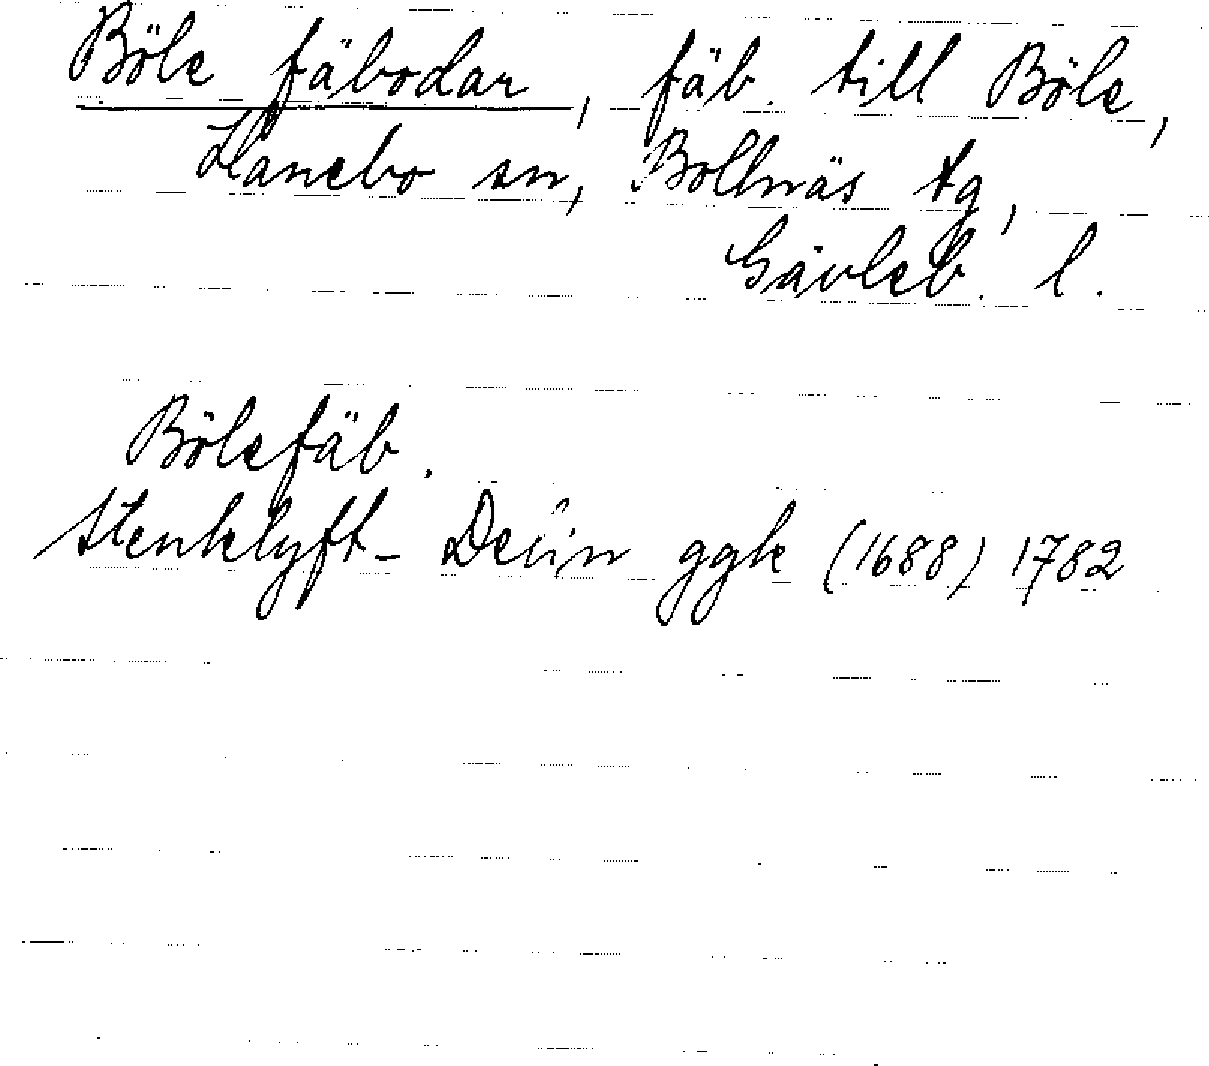 Böle fäbodar, fäb. till Böle,
Hanebo sn, Bollnäs tg,
Gävleb. l.
Bölefäb.
Stenklyft- ggk (1688) 1782